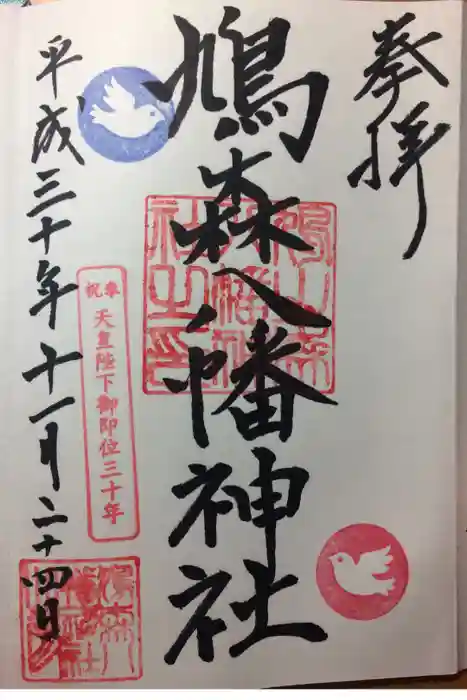 奉拝
鳩森八幡神社
奉祝
天皇陛下御即位三十年
平成三十年十一月二十四日